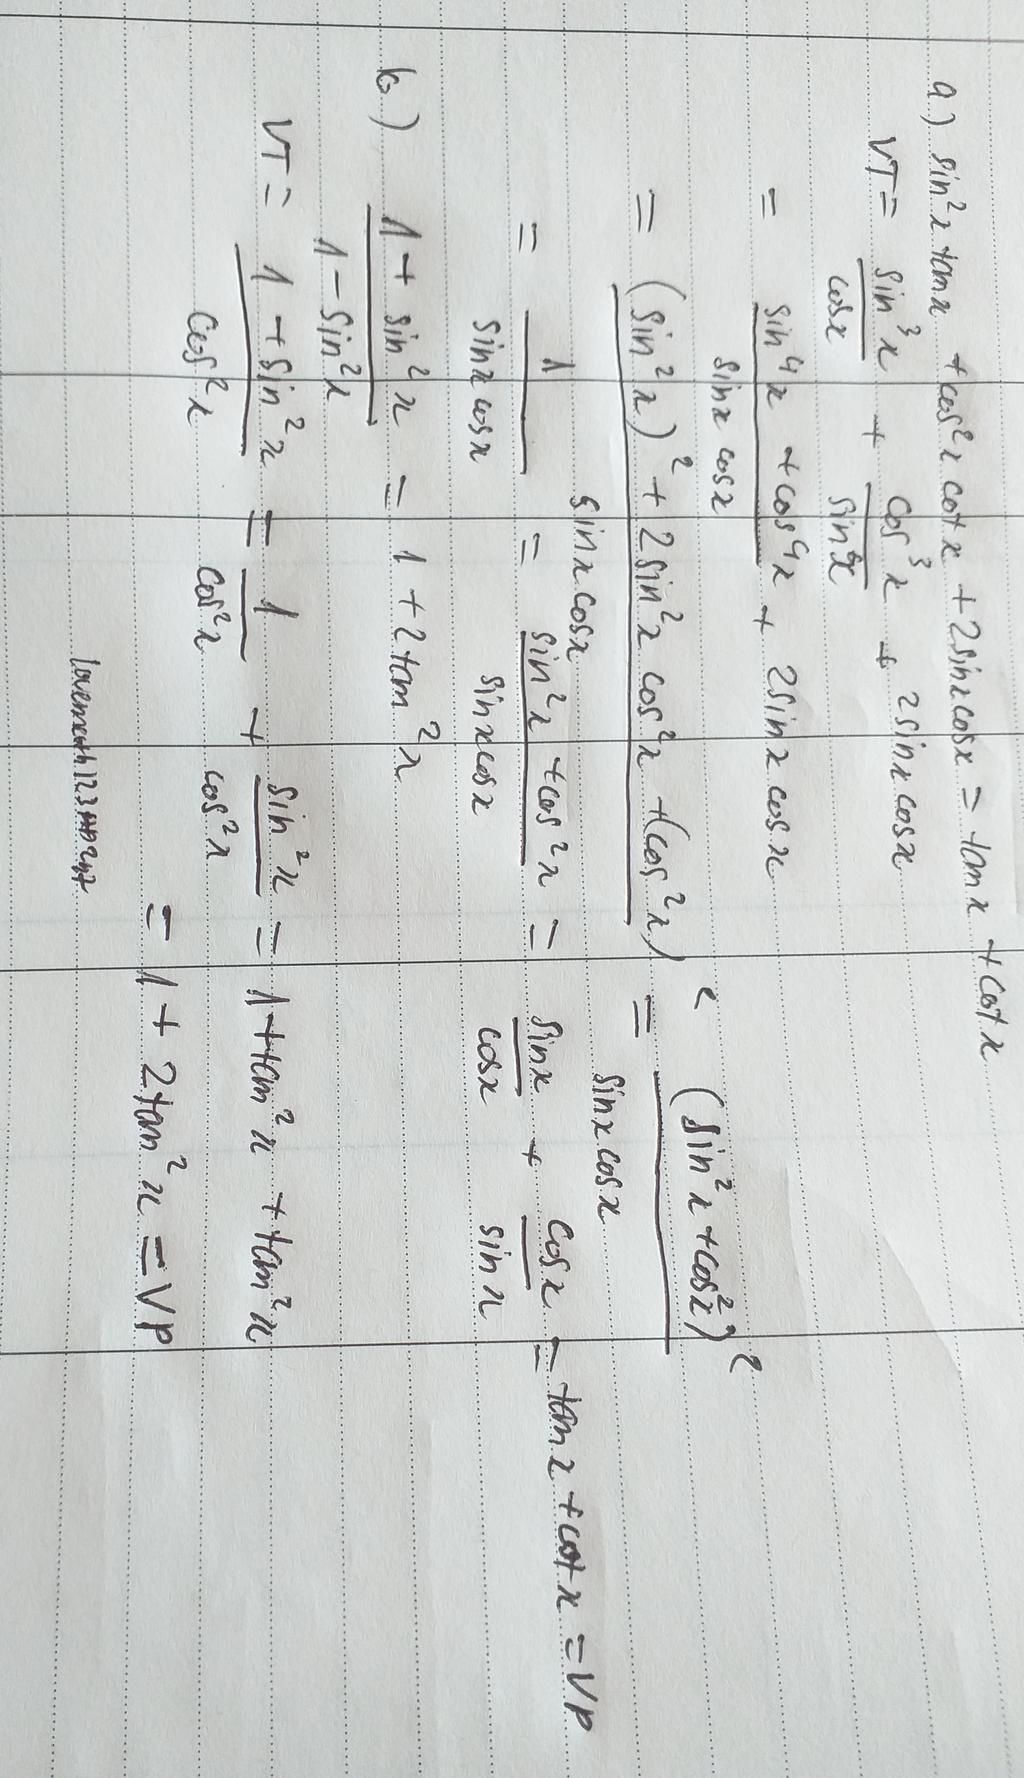 a.) sin²x tanx + cos²x cotx + 2sinxcosx = tanx + cotx
VT = sin³x/cosx + cos³x/sinx + 2sinxcosx
= (sin⁴x + cos⁴x)/(sinx cosx) + 2sinx cosx
= ((sin²x)² + 2sin²x cos²x + (cos²x)²)/(sinx cosx) = (sin²x + cos²x)²/(sinx cosx)
= 1/(sinx cosx) = (sin²x + cos²x)/(sinxcosx) = sinx/cosx + cosx/sinx = tanx + cotx = VP
b.) (1 + sin²x)/(1 - sin²x) = 1 + 2tan²x
VT = (1 + sin²x)/cos²x = 1/cos²x + sin²x/cos²x = 1 + tan²x + tan²x
= 1 + 2tan²x = VP